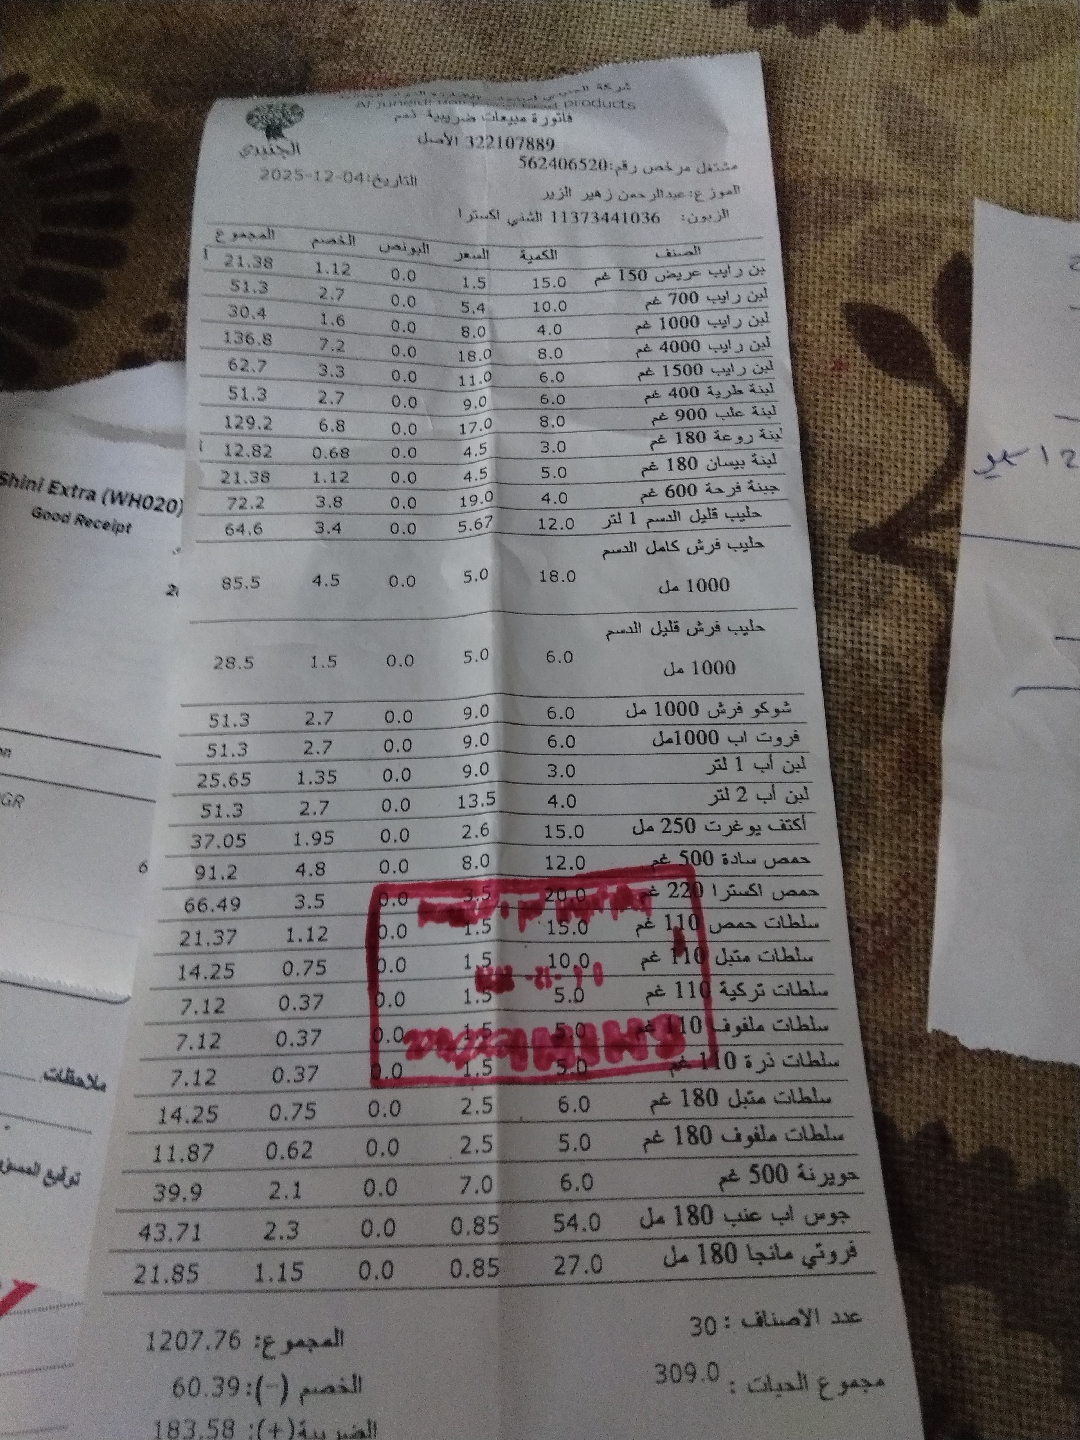 الجنيدي
products
فاتورة مبيعات ضريبية
322107889 الأصل
مشتغل مرخص رقم:562406520
التاريخ:2025-12-04
الموزع:عبدالرحمن زهير الزير
الزبون: 11373441036 الشني اكسترا
الصنف الكمية السعر البونص الخصم المجموع
بن رايب عريض 150 غم 15.0 1.5 0.0 1.12 21.38
لبن رايب 700 غم 10.0 5.4 0.0 2.7 51.3
لبن رايب 1000 غم 4.0 8.0 0.0 1.6 30.4
لبن رايب 4000 غم 8.0 18.0 0.0 7.2 136.8
لبن رايب 1500 غم 6.0 11.0 0.0 3.3 62.7
لبنة طرية 400 غم 6.0 9.0 0.0 2.7 51.3
لبنة علب 900 غم 8.0 17.0 0.0 6.8 129.2
لبنة روعة 180 غم 3.0 4.5 0.0 0.68 12.82
لبنة بيسان 180 غم 5.0 4.5 0.0 1.12 21.38
جبنة فرحة 600 غم 4.0 19.0 0.0 3.8 72.2
حليب قليل الدسم 1 لتر 12.0 5.67 0.0 3.4 64.6
حليب فرش كامل الدسم
1000 مل 18.0 5.0 0.0 4.5 85.5
حليب فرش قليل الدسم
1000 مل 6.0 5.0 0.0 1.5 28.5
شوكو فرش 1000 مل 6.0 9.0 0.0 2.7 51.3
فروت اب 1000مل 6.0 9.0 0.0 2.7 51.3
لبن أب 1 لتر 3.0 9.0 0.0 1.35 25.65
لبن أب 2 لتر 4.0 13.5 0.0 2.7 51.3
أكتف يوغرت 250 مل 15.0 2.6 0.0 1.95 37.05
حمص سادة 500 غم 12.0 8.0 0.0 4.8 91.2
حمص اكسترا 220 غم 20.0 3.5 0.0 3.5 66.49
سلطات حمص 110 غم 15.0 1.5 0.0 1.12 21.37
سلطات متبل 110 غم 10.0 1.5 0.0 0.75 14.25
سلطات تركية 110 غم 5.0 1.5 0.0 0.37 7.12
سلطات ملفوف 110 غم 5.0 1.5 0.0 0.37 7.12
سلطات ذرة 110 غم 5.0 1.5 0.0 0.37 7.12
سلطات متبل 180 غم 6.0 2.5 0.0 0.75 14.25
سلطات ملفوف 180 غم 5.0 2.5 0.0 0.62 11.87
حويرنة 500 غم 6.0 7.0 0.0 2.1 39.9
جوس اب عنب 180 مل 54.0 0.85 0.0 2.3 43.71
فروتي مانجا 180 مل 27.0 0.85 0.0 1.15 21.85
عدد الاصناف : 30
المجموع: 1207.76
مجموع الحبات : 309.0
الخصم (-):60.39
الضريبة(+): 183.58
Shini Extra (WH020)
Good Receipt
GR
6
ملاحظات